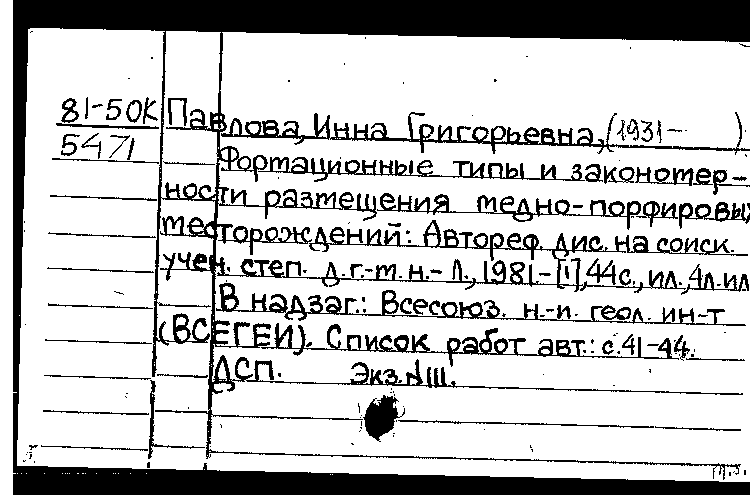 81-50К Павлова, Инна Григорьевна, (1931- )
5471
Формационные типы и закономер-
ности размещения медно-порфировых
месторождений: Автореф. дис. на соиск.
учен. степ. д.г.-м.н.- Л., 1981.-[1], 44с., ил., 4л. ил
В надзаг.: Всесоюз. н.-и. геол. ин-т
(ВСЕГЕИ). Список работ авт.: с. 41-44.
ДСП. Экз.